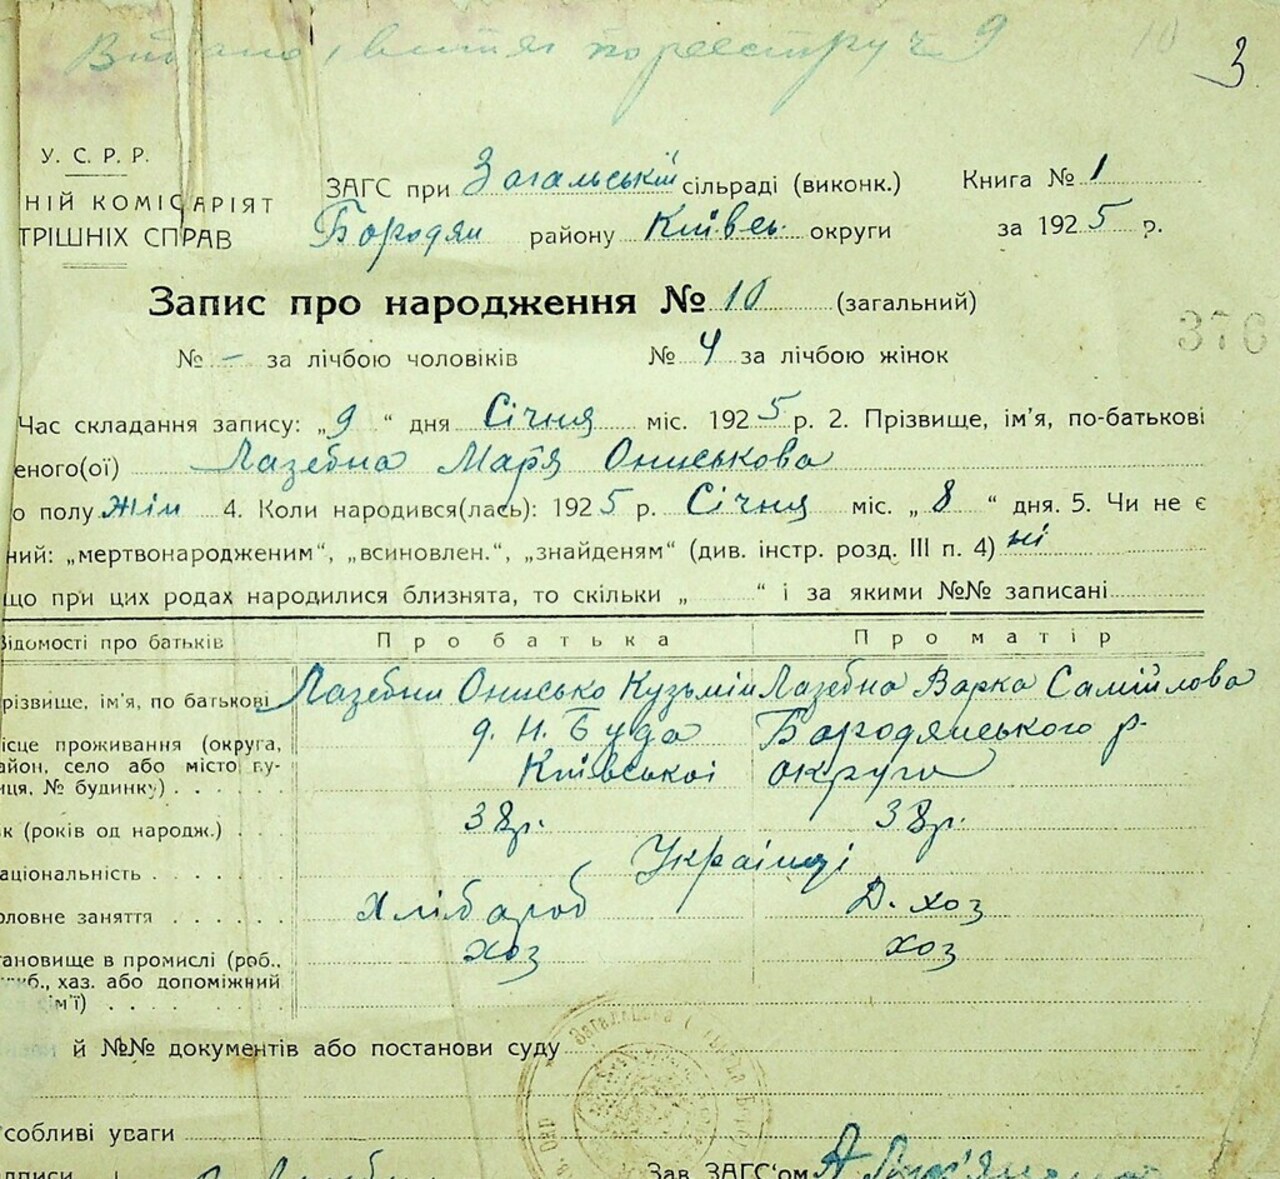 Видано витяг по реєстру ч 9
10
3
У. С. Р. Р.
НІЙ КОМІСАРІЯТ
ТРІШНІХ СПРАВ
ЗАГС при Загальській сільраді (виконк.) Книга № 1
Бородян району Київсь. округи за 1925 р.
Запис про народження № 10 (загальний)
376
№ – за лічбою чоловіків № 4 за лічбою жінок
Час складання запису: „9“ дня Січня міс. 1925 р. 2. Прізвище, ім'я, по-батькові
еного(ої) Лазебна Мар'я Ониськова
о полу Жін 4. Коли народився(лась): 1925 р. Січня міс. „8“ дня. 5. Чи не є
ний: „мертвонародженим“, „всиновлен.“, „знайденям“ (див. інстр. розд. III п. 4) ні
що при цих родах народилися близнята, то скільки „ “ і за якими №№ записані
Відомості про батьків Про батька Про матір
різвище, ім'я, по батькові Лазебни Онисько Кузьмін Лазебна Варка Самійлова
ісце проживання (округа, д. Н. Буда Бородянського р.
айон, село або місто ву-
иця, № будинку) Київської округи
к (років од народж.) 38 р. 38 р.
аціональність Українці
оловне заняття Хлібороб Д. хоз
тановище в промислі (роб., хоз хоз
ужб., хаз. або допоміжний
ім'ї)
й №№ документів або постанови суду
Загальська
собливі уваги
дписи
Зав. ЗАГС'ом